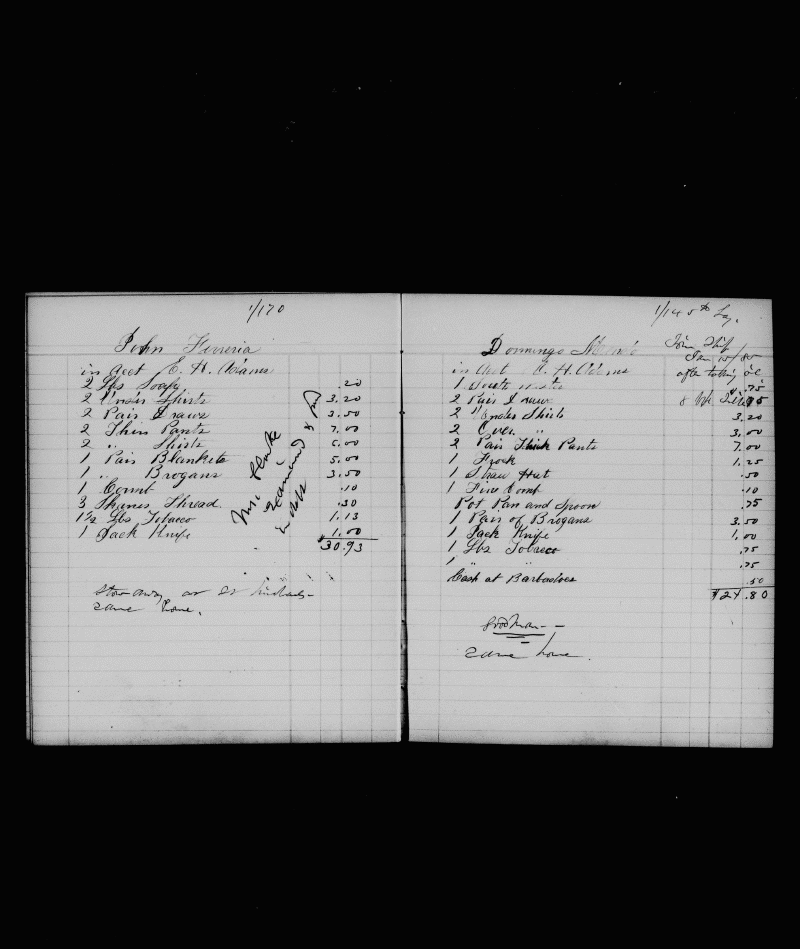 1/170
John Ferreria
in Acct E. H. Adams
2 Lbs Soap .20
2 Under Shirts 3.20
2 Pair Draws 3.50
2 Thin Pants 7.00
2 " Shirts 6.00
1 Pair Blankets 5.00
1 " Brogans 3.50
1 Comb .10
3 Skanes Thread .30
1½ Lbs Tobacco 1.13
1 Jack Knife 1.00
$30.93
Mr.
in debt
Stow away at St
came home.
1/145th Lay.
Domingo
Join Ship
Jan 15/80
after taking oil
in Acct E. H. Adams
1 .75
2 Pair Draws
2 Under Shirts 3.20
2 Over " 3.00
2 Pair Thick Pants 7.00
1 Frock 1.25
1 Straw Hat .50
1 Fine Comb .10
Pot Pan and Spoon .75
1 Pair of Brogans 3.50
1 Jack Knife 1.00
1 Lbs Tobacco .75
1 " " .75
Cash at Barbadoes .50
$24.80
Good Man
came home.